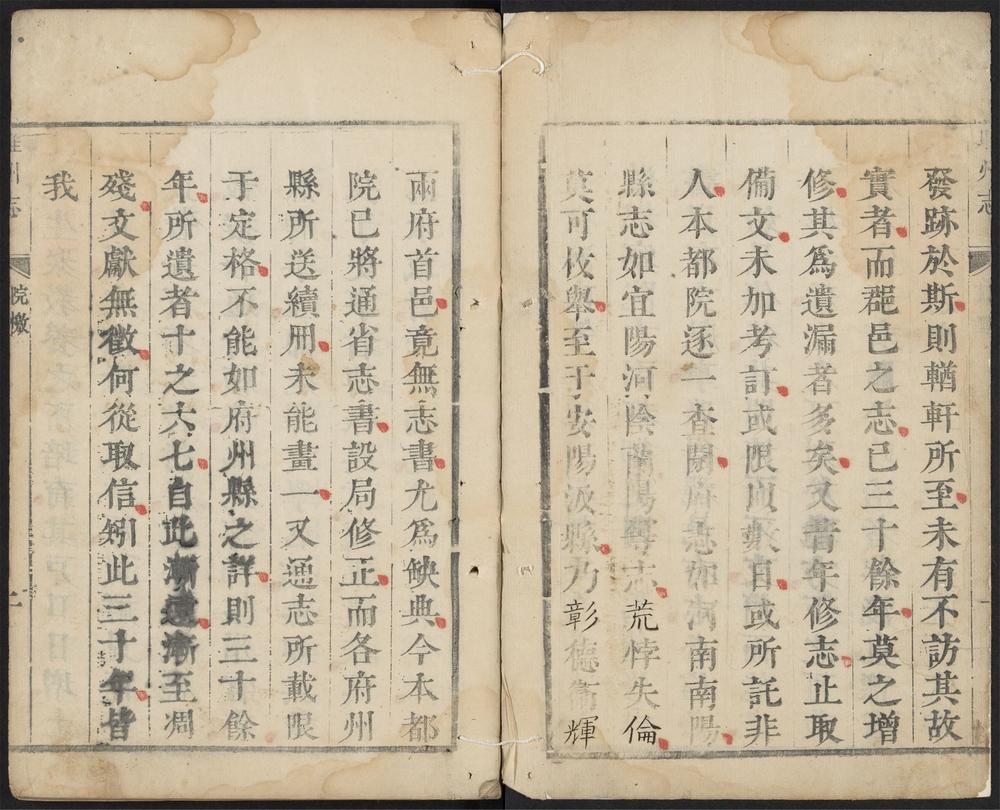 發跡於斯則輶軒所至未有不訪其故
實者而郡邑之志已三十餘年莫之增
修其爲遺漏者多矣又昔年修志止取
備文未加考訂或限頁數日或所託非
人本都院逐一查閱府志如河南南陽
縣志如宜陽河陰蘭陽等志荒悖失倫
莫可枚舉至于安陽汲縣乃彰德衞輝
兩府首邑竟無志書尤爲缺典今本都
院已將通省志書設局修正而各府州
縣所送續冊未能畫一又通志所載限
于定格不能如府州縣之詳則三十餘
年所遺者十之六七自此漸遠漸至凋
殘文獻無徵何從取信矧此三十年皆
我
州志
州志
院檄